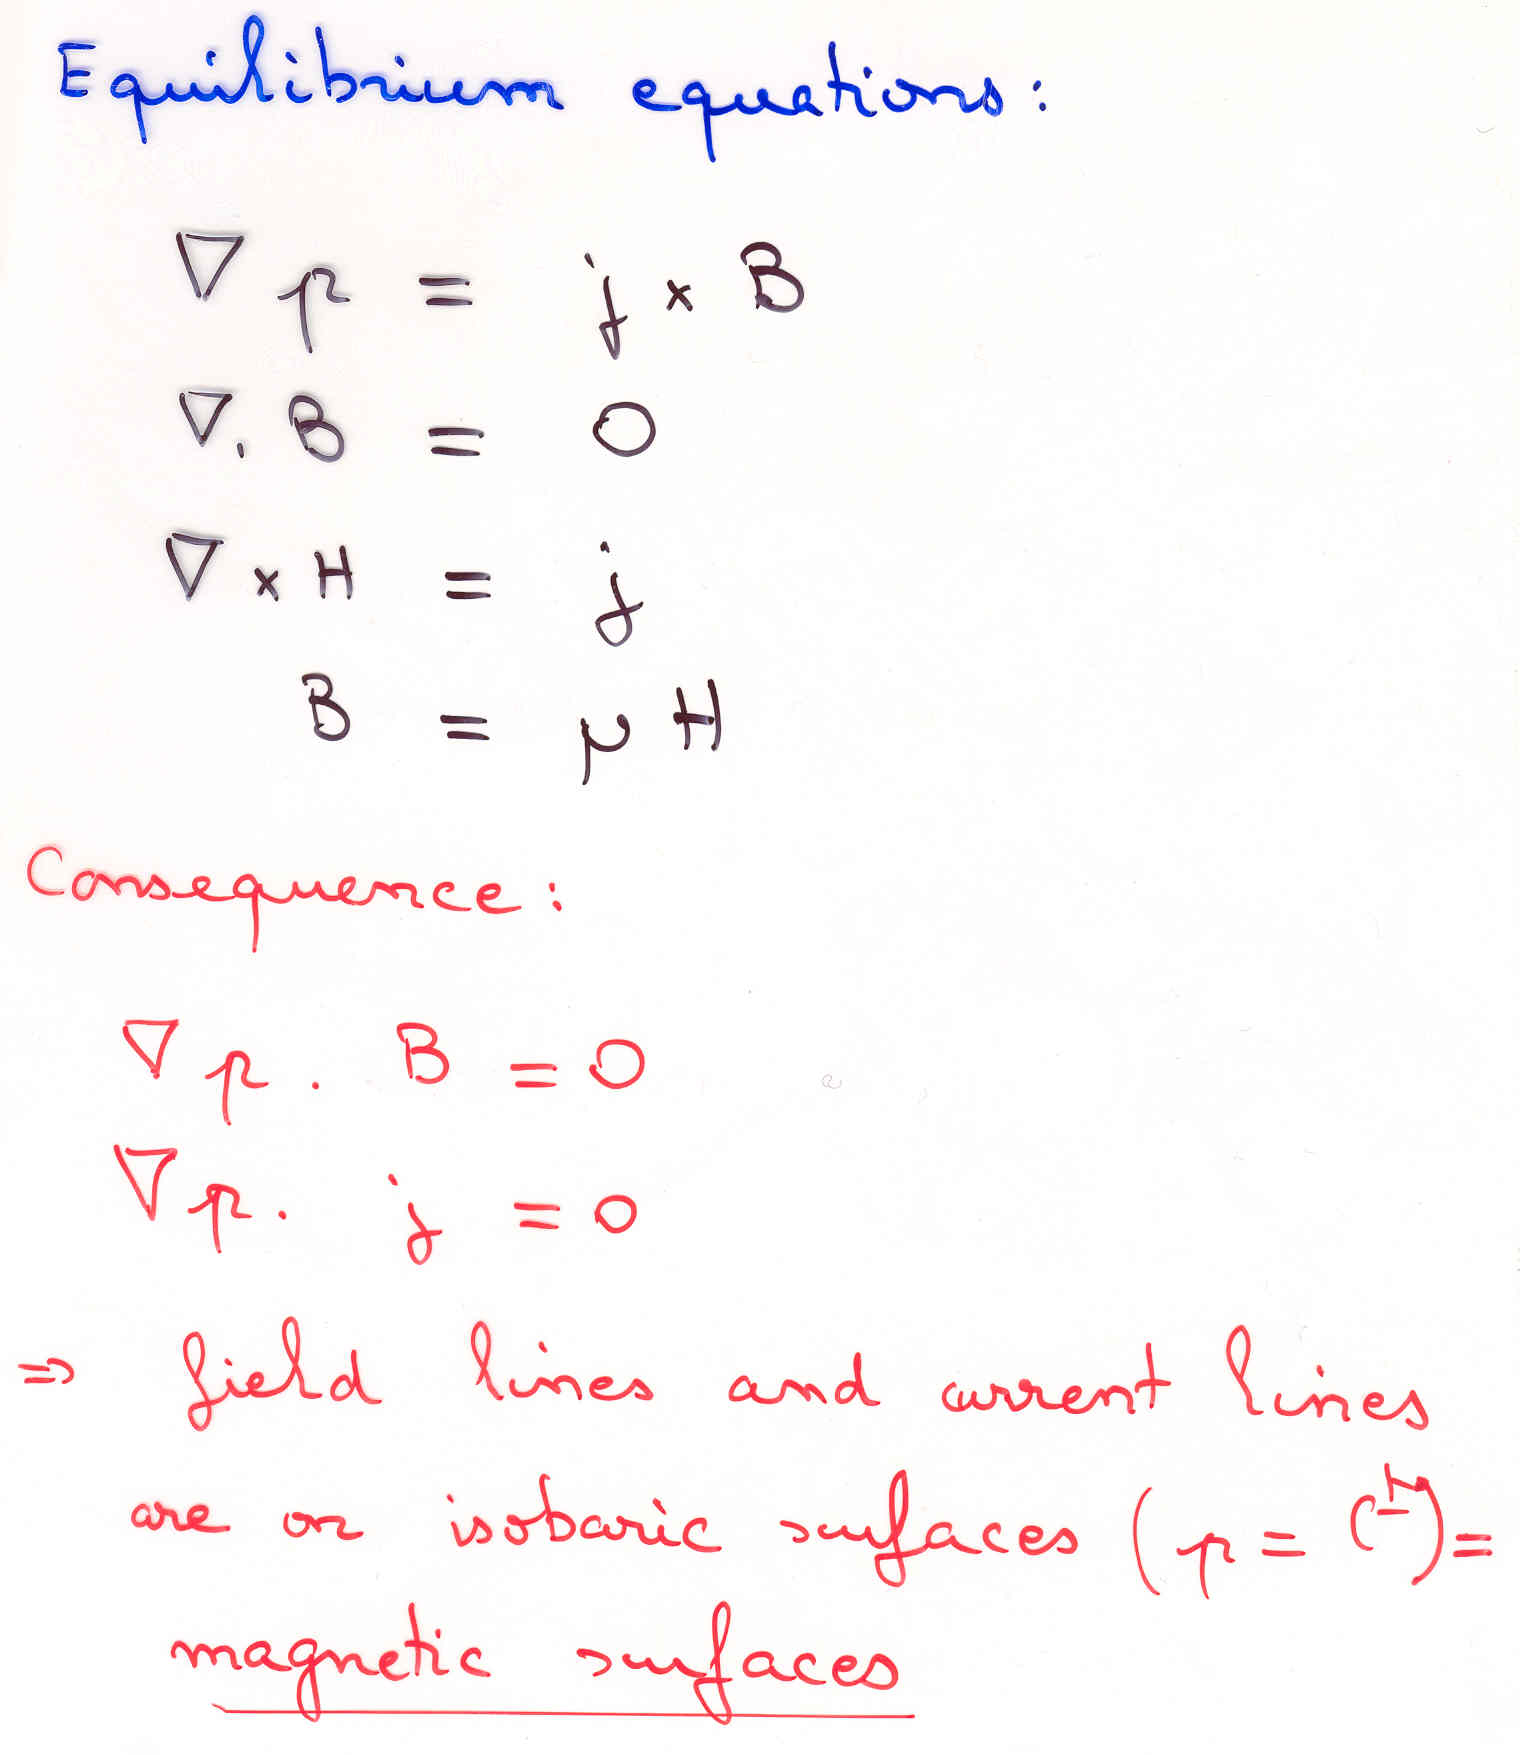 Equilibrium equations:
∇ p = j × B
∇. B = 0
∇ × H = j
B = μ H
Consequence:
∇ p . B = 0
∇ p . j = 0
⇒ field lines and current lines
are on isobaric surfaces (p = Cᵗ) =
magnetic surfaces